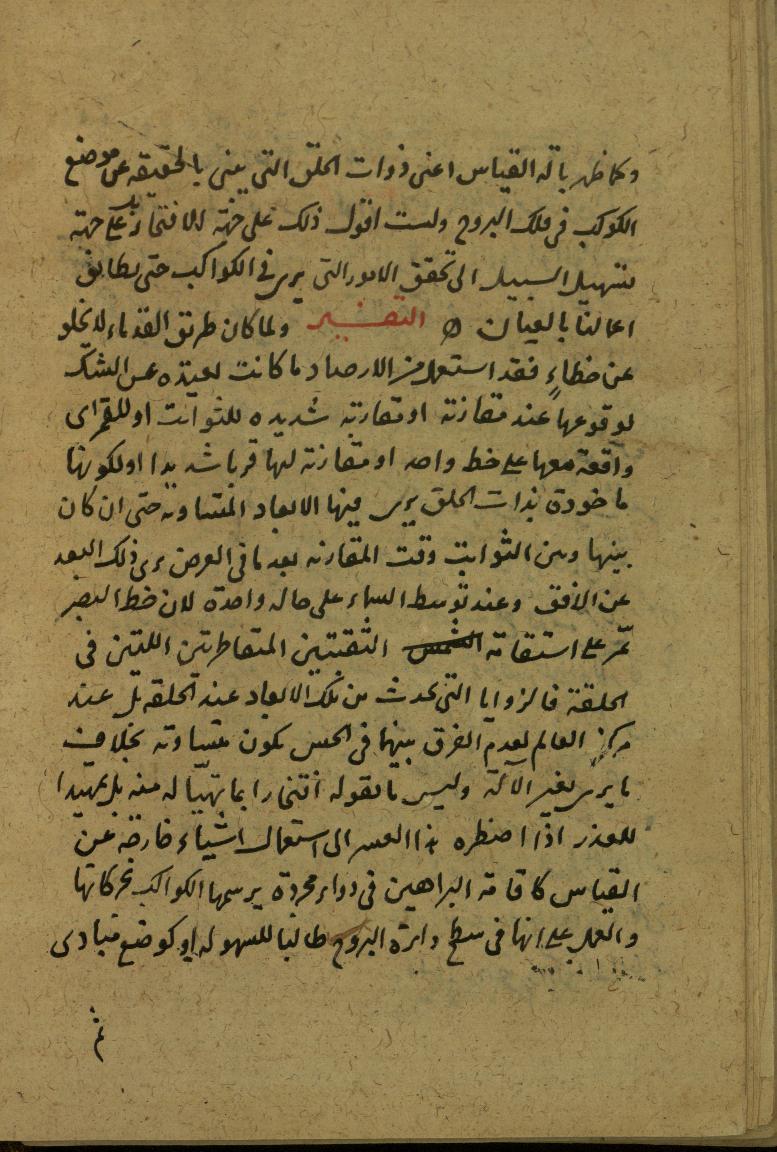 وكما ظهر بآلة القياس اعنى ذوات الحلق التى ينبى بالحقيقه عن موضع
الكوكب فى فلك البروج ولست اقول ذلك على جهة الافتخار بل على جهة
تسهيل السبيل الى تحقق الامور التى يرى فى الكواكب حتى يطابق
اعمالنا بالعيان ⌀ التفسير ولما كان طريق القدماء لا يخلو
عن خطاءٍ فقد استعمل من الارصاد ما كانت بعيده عن الشك
لوقوعها عند مقارنة او مقاربة شديده للثوابت او للقمر اى
واقعة معها على خط واحد او مقارنة لها قربا شديدا او لكونها
ماخوذة بذات الحلق يرى فيها الابعاد المتساوية حتى ان كان
بينها وبين الثوابت وقت المقارنه بعد ما فى العرض يرى ذلك البعد
عن الافق وعند توسط السماء على حالة واحدة لان خط البصر
يمر على استقامة الشمس الثقبتين المتقاطرتين اللتين فى
الحلقة فالزوايا التى تحدث من تلك الابعاد عند الحلقه بل عند
مركز العالم لعدم الفرق بينها فى الحس يكون متساوية بخلاف
ما يرى بغير الآلة وليس ما نقوله افتخارا بما تهيّا له منه بل تمهيدا
للعذر اذا اضطره هذا العسر الى استعمال اشياء خارجه عن
القياس كاقامة البراهين فى دواير مجردة يرسمها الكواكب بحركاتها
والعمل على انها فى سطح دايرة البروج طالبا للسهولة او كوضع مبادى
ثم